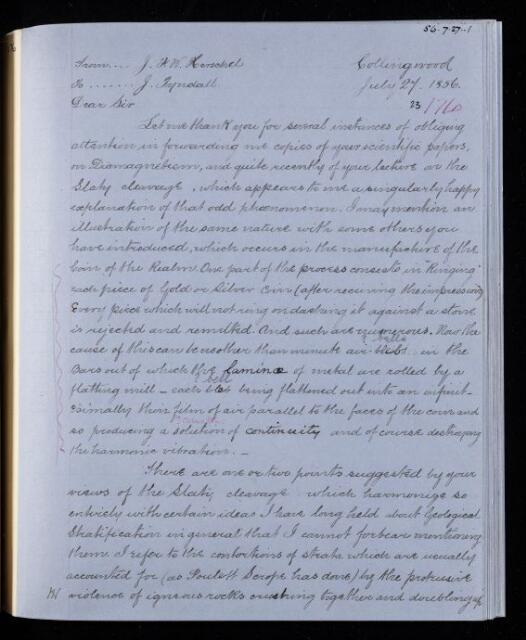 56.7.27.1
From... J F W Herschel Collingwood
To ...... J. Tyndall July 27. 1856.
Dear Sir 23
Let me thank you for several instances of obliging
attention in forwarding me copies of your scientific papers,
on Diamagnetism, and quite recently of your lecture on the
Slaty cleavage, which appears to me a singularly happy
explanation of that odd phœnomenon. I may mention an
illustration of the same nature with some others you
have introduced, which occurs in the manufacture of the
Coin of the Realm. One part of the process consists in "Ringing"
each piece of Gold or Silver Coin (after receiving the impression)
Every piece which will not ring on dashing it against a stone
is rejected and remelted. And such are numerous. Now the
? bells
cause of this can be no other than minute air in the
Bars out of which the laminæ of metal are rolled by a
? bell
flatting mill – each being flattened out into an infinit-
esimally thin film of air parallel to the faces of the coin and
so producing a solution of continuity and of course destroying
the harmonic vibration. –
There are one or two points suggested by your
views of the Slaty cleavage which harmonize so
entirely with certain ideas I have long held about Geological
Stratification in general that I cannot forbear mentioning
them. I refer to the contortions of strata which are usually
accounted for (as Poulett Scrope has done) by the protrusive
violence of igneous rocks crushing together and doubling up